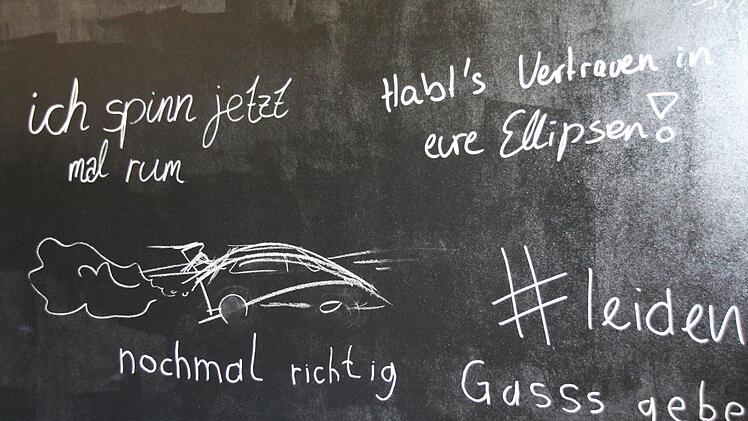 ich spinn jetzt
mal rum
Habt's Vertrauen in
eure Ellipsen!
#leiden
nochmal richtig
Gasss gebe